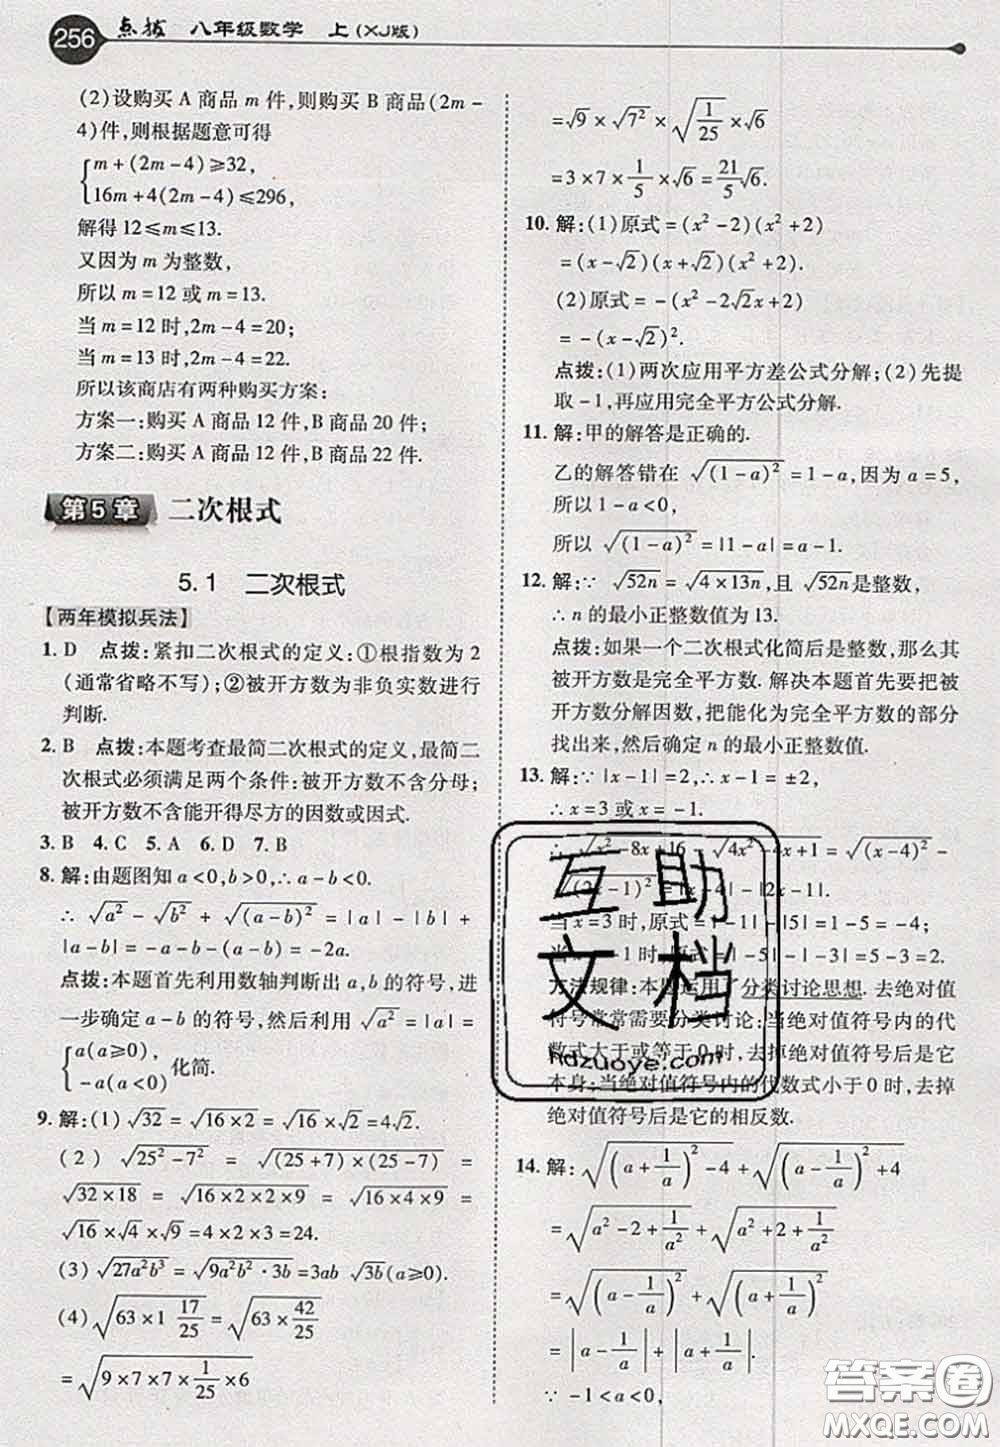 256 点拨 八年级数学 上(XJ版)
(2)设购买 A 商品 m 件,则购买 B 商品(2m-
4)件,则根据题意可得
{m+(2m-4)≥32,
16m+4(2m-4)≤296,
解得 12≤m≤13.
又因为 m 为整数,
所以 m=12 或 m=13.
当 m=12 时,2m-4=20;
当 m=13 时,2m-4=22.
所以该商店有两种购买方案:
方案一:购买 A 商品 12 件,B 商品 20 件;
方案二:购买 A 商品 12 件,B 商品 22 件.
第5章 二次根式
5.1 二次根式
【两年模拟兵法】
1. D 点拨:紧扣二次根式的定义:①根指数为 2
(通常省略不写);②被开方数为非负实数进行
判断.
2. B 点拨:本题考查最简二次根式的定义,最简二
次根式必须满足两个条件:被开方数不含分母;
被开方数不含能开得尽方的因数或因式.
3. B 4. C 5. A 6. D 7. B
8. 解:由题图知 a<0,b>0,∴a-b<0.
∴ √a² - √b² + √(a-b)² = |a| - |b| +
|a-b| = -a-b-(a-b) = -2a.
点拨:本题首先利用数轴判断出 a,b 的符号,进
一步确定 a-b 的符号,然后利用 √a² = |a| =
{a(a≥0),
-a(a<0) 化简.
9. 解:(1) √32 = √(16×2) = √16 × √2 = 4√2.
(2) √(25²-7²) = √((25+7)×(25-7)) =
√(32×18) = √(16×2×2×9) = √(16×4×9) =
√16×√4×√9 = 4×2×3 = 24.
(3) √(27a²b³) = √(9a²b²·3b) = 3ab √3b(a≥0).
(4) √(63×1 17/25) = √(63×42/25)
= √(9×7×7×1/25×6)
= √9×√7²×√(1/25)×√6
= 3×7×1/5×√6 = 21/5 √6.
10. 解:(1)原式 = (x²-2)(x²+2)
= (x-√2)(x+√2)(x²+2).
(2)原式 = -(x²-2√2x+2)
= -(x-√2)².
点拨:(1)两次应用平方差公式分解;(2)先提
取 -1,再应用完全平方公式分解.
11. 解:甲的解答是正确的.
乙的解答错在 √(1-a)² = 1-a,因为 a=5,
所以 1-a<0,
所以 √(1-a)² = |1-a| = a-1.
12. 解:∵ √52n = √(4×13n),且 √52n是整数,
∴ n 的最小正整数值为 13.
点拨:如果一个二次根式化简后是整数,则其
被开方数是完全平方数. 解决本题首先要把被
开方数分解因数,把能化为完全平方数的部分
找出来,然后确定 n 的最小正整数值.
13. 解:∵ |x-1|=2,∴ x-1=±2,
∴ x=3 或 x=-1.
∴ √(x²-8x+16) - √(4x²-4x+1) = √(x-4)² -
√(2x-1)² = |x-4| - |2x-1|.
当 x=3 时,原式 = |-1| - |5| = 1-5 = -4;
当 x=-1 时,原式 = |-5| - |-3| = 5-3 = 2.
方法规律:本题运用了分类讨论思想. 去绝对值
符号常常需要分类讨论:当绝对值符号内的代
数式大于或等于 0 时,去掉绝对值符号后是它
本身;当绝对值符号内的代数式小于 0 时,去掉
绝对值符号后是它的相反数.
14. 解: √((a+1/a)²-4) + √((a-1/a)²+4)
= √(a²-2+1/a²) + √(a²+2+1/a²)
= √(a-1/a)² + √(a+1/a)²
= |a-1/a| + |a+1/a|.
∵ -1<a<0,
互助
文档
hdzuoye.com
答案圈
MXQE.COM